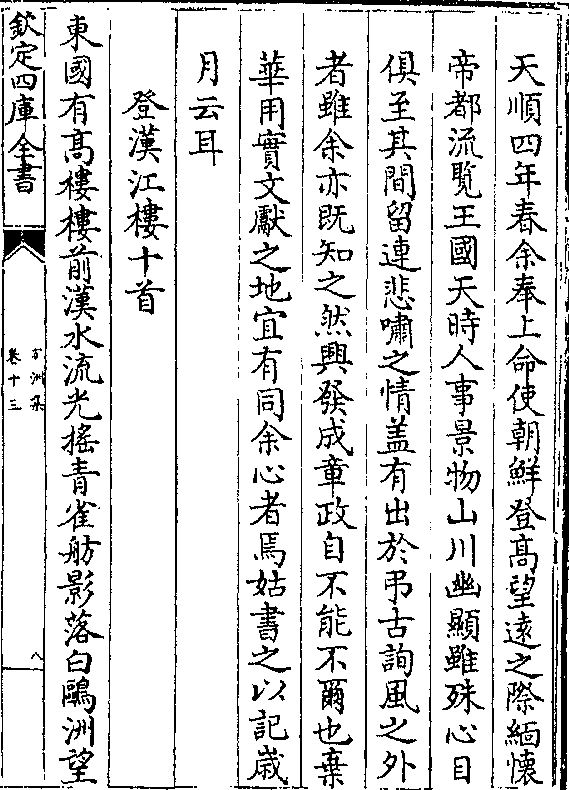 天順四年春余奉上命使朝鮮登髙望遠之際緬懐
帝都流覧王國天時人事景物山川幽顯雖殊心目
俱至其間留連悲嘯之情盖有出於弔古詢風之外
者雖余亦既知之然興發成章政自不能不爾也棄
華用實文獻之地宜有同余心者焉姑書之以記嵗
月云耳
登漢江樓十首
東國有髙樓樓前漢水流光揺青雀舫影落白鷗洲望
欽定四庫全書
方洲集
卷十三
八